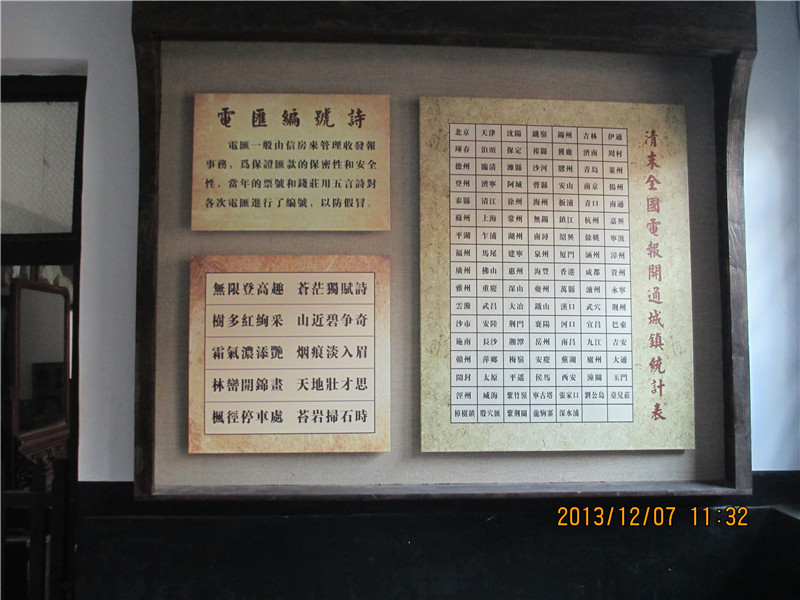 電匯編號詩
電匯一般由信房來管理收發報
事務，爲保證匯款的保密性和安全
性，當年的票號和錢莊用五言詩對
各次電匯進行了編號，以防假冒。
無限登高趣 蒼茫獨賦詩
樹多紅絢采 山近碧争奇
霜氣濃添艷 烟痕淡入眉
林巒開錦畫 天地壯才思
楓徑停車處 苔岩掃石時
清末全國電報開通城鎮統計表
北京 天津 沈陽 鐵嶺 錦州 吉林 伊通
琿春 泊頭 保定 祁縣 獲鹿 濟南 周村
德州 臨清 濰縣 沙河 膠州 青島 萊州
登州 濟寧 阿城 曹縣 安山 南京 揚州
泰縣 清江 徐州 海州 板浦 青口 南通
蘇州 上海 常州 無錫 鎮江 杭州 嘉興
平湖 乍浦 湖州 南潯 紹興 餘姚 寧波
福州 馬尾 建寧 泉州 厦門 涵州 漳州
廣州 佛山 惠州 海豐 香港 成都 資州
雅州 重慶 深山 夔州 萬縣 瀘州 永寧
雲陽 武昌 大冶 鐵山 漢口 武穴 荆州
沙市 安陸 荆門 襄陽 河口 宜昌 巴東
施南 長沙 湘潭 岳州 南昌 九江 吉安
贛州 萍鄉 梅嶺 安慶 蕪湖 廬州 大通
開封 太原 平遥 侯馬 西安 潼關 玉門
涇州 威海 紫竹嶺 寧古塔 張家口 劉公島 臺兒莊
樟樹鎮 殷穴匯 紫荆關 龍駒寨 深水浦
2013/12/07 11:32